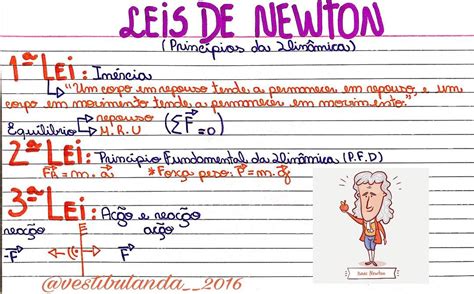 LEIS DE NEWTON
(Princípios da Dinâmica)
1ª LEI: Inércia
"Um corpo em repouso tende a permanecer em repouso, e um
corpo em movimento tende a permanecer em movimento."
Equilíbrio repouso
M.R.U (ΣF=0)
2ª LEI: Princípio Fundamental da Dinâmica (P.F.D)
FR = m.a *Força peso: P=m.g
3ª LEI: Ação e reação
reação ação
-F F
Isaac Newton
@vestibulanda__2016